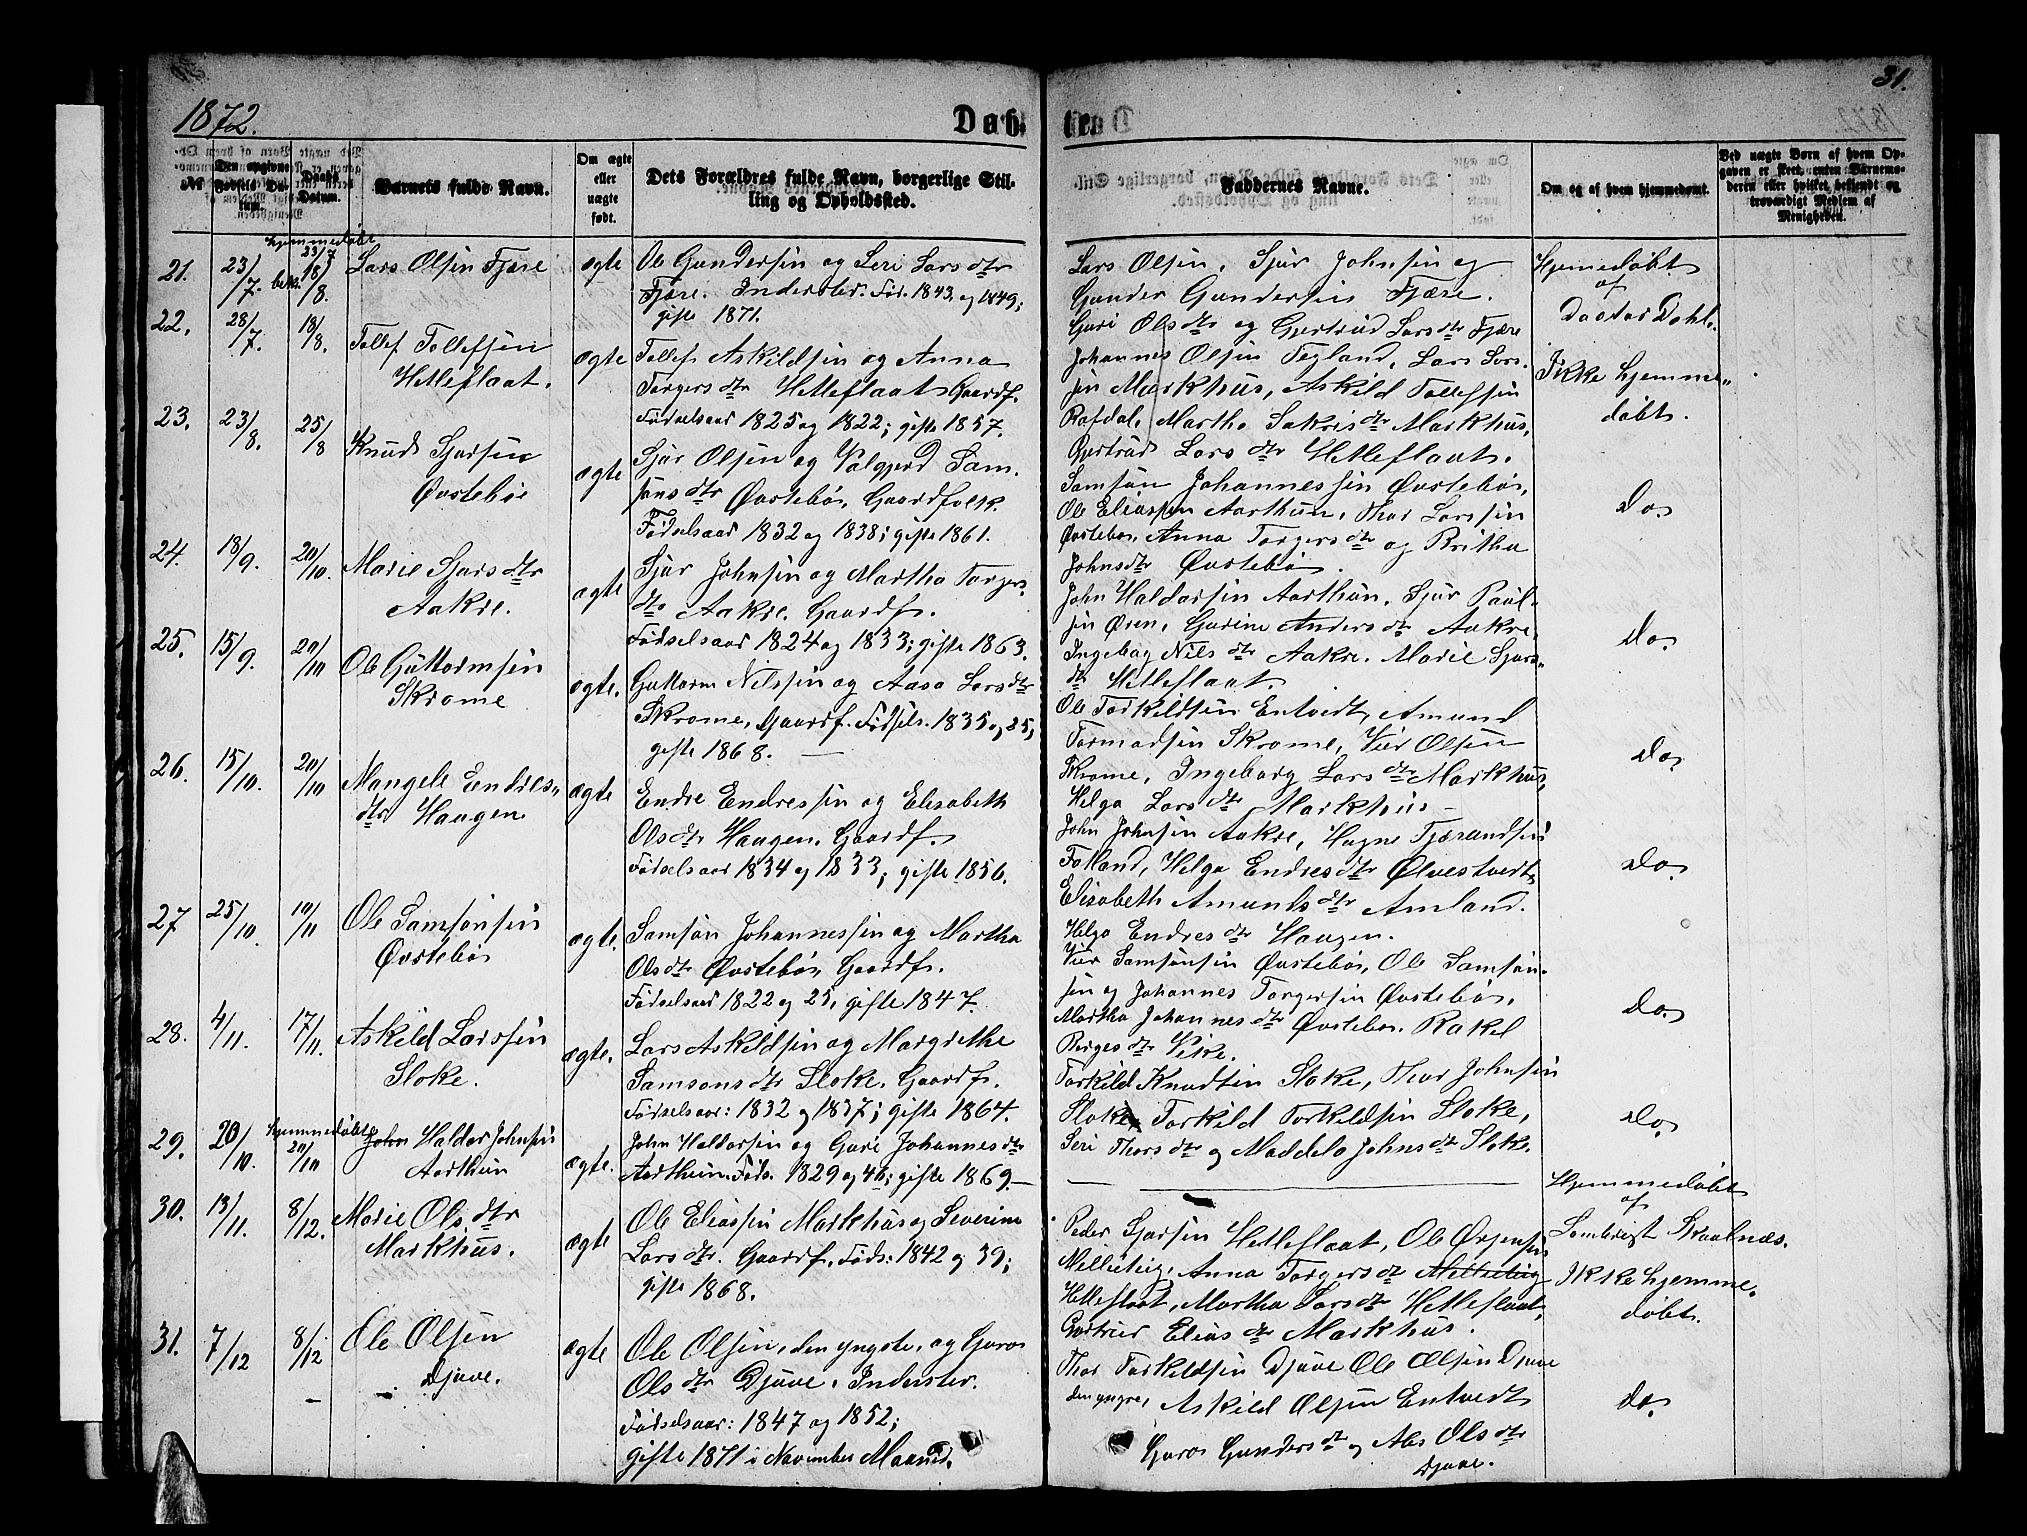 1872.
Døbte
31.
№
Den opgivne Fødsels Datum.
Daabs Datum.
Barnets fulde Navn.
Om ægte eller uægte født.
Dets Forældres fulde Navn, borgerlige Stilling og Opholdssted.
Faddernes Navne.
Om og af hvem hjemmedøbt.
Ved uægte Børn af hvem Opgaven er skeet, enten Barnemoderen eller hvilket bekjendt og troværdigt Medlem af Menigheden.
21.
23/7.
hjemmedøbt 23/7
bekr. 18/8.
Lars Olsen Fjære
ægte
Ole Gundersen og Seri Larsdtr
Fjære. Inderster. Fød. 1843 og 1849;
gifte 1871.
Lars Olsen, Sjur Johnsen og
Gunder Gundersen Fjære.
Guri Olsdtr og Gjertrud Larsdtr Fjære
Hjemmedøbt
af
Doctor Dahl.
22.
28/7.
18/8.
Tollef Tollefsen
Hetleflaat.
ægte
Tollef Askildsen og Anna
Torgersdtr Hetleflaat Gaardf.
Fødselsaar 1825 og 1822; gifte 1857.
Johannes Olsen Tegland, Lars Lars-
sen Markhus, Askild Tollefsen
Rafdal, Martha Sakrisdtr Markhus,
Gjertrud Larsdtr Hetleflaat.
Ikke hjemme-
døbt.
23.
23/8.
25/8
Knud Sjursen
Øvstebøe
ægte
Sjur Olsen og Valgjerd Sam-
sonsdtr Øvstebø, Gaardfolk.
Fødselsaar 1832 og 1838; gifte 1861.
Samson Johannessen Øvstebø,
Ole Eliassen Aarthun, Thor Larssen
Øvstebø, Anna Torgersdtr og Britha
Johnsdtr Øvstebø.
Do.
24.
18/9.
20/10.
Marie Sjursdtr
Aakre.
ægte
Sjur Johnsen og Martha Torgers-
dtr Aakre. Gaardf.
Fødselsaar 1824 og 1833; gifte 1863.
John Haldorsen Aarthun, Sjur Paul-
sen Øren, Gurine Andersdtr Aakre,
Ingebog Nilsdtr Aakre. Marie Sjurs-
dtr Hetleflaat.
do.
25.
15/9.
20/10
Ole Guttormsen
Skrome
ægte.
Guttorm Nilssen og Aasa Larsdtr
Skrome, Gaardf. Fødsels. 1835 og 25,
gifte 1868.
Ole Torkildsen Entvedt, Amund
Tormodsen Skrome, Vier Olsen
Skrome, Ingeborg Larsdtr Markhus,
Helga Larsdtr Markhus
do.
26.
15/10.
20/10
Mangele Endres-
dtr Haugen
ægte
Endre Endressen og Elisabeth
Olsdtr Haugen, Gaardf.
Fødselsaar 1834 og 1833; gifte 1856.
John Johnsen Aakre, Hagne Tjærandsen
Folland, Helga Endresdtr Ølvestvedt,
Elisabeth Amundsdtr Amland.
Helga Endresdtr Haugen.
Do.
27
25/10.
10/11
Ole Samsonsen
Øvstebø
ægte.
Samson Johannessen og Martha
Olsdtr Øvstebø, Gaardf.
Fødselsaar 1822 og 25, gifte 1847.
Vier Samsonsen Øvstebø, Ole Samson-
sen og Johannes Torgersen Øvstebø,
Martha Johannesdtr Øvstebø. Rakel
Børgesdtr Vike.
Do.
28.
4/11.
17/11.
Askild Larssen
Sloke.
ægte.
Lars Askildsen og Margrethe
Samsonsdtr Sloke, Gaardf.
Fødselsaar: 1832 og 1837; gifte 1864.
Torkild Knudsen Sloke, Thor Johnsen
Sloke, Torkild Torkildsen Sloke,
Seri Thorsdtr og Maddela Johnsdtr Sloke.
Do.
29.
20/10.
hjemmedøbt
20/10
Haldor Johnsen
Aarthun
ægte.
John Haldorsen og Guri Johannesdtr
Aarthun. Føds. 1829 og 46; gifte 1869.
Hjemmedøbt
af
Sombrigt Straalnæs.
30.
13/11.
8/12.
Marie Olsdtr
Markhus.
ægte
Ole Eliassen Markhus og Severine
Larsdtr. Gaardf. Føds: 1842 og 39;
gifte 1868.
Peder Sjursen Hetleflaat, Ole Ørjensen
Melleteig, Anna Torgersdtr Melleteig
Hetleflaat, Martha Larsdtr Hetleflaat,
Gjertrud Eliasdtr Markhus.
Ikke hjemme-
døbt.
31.
7/12
8/12
Ole Olsen
Djuve.
ægte
Ole Olsen, den yngste, og Guro
Olsdtr Djuve. Inderster.
Fødselsaar: 1847 og 1852;
gifte 1871 i November Maaned.
Thor Torkildsen Djuve Ole Olsen Djuve
den yngre, Askild Olsen Entvedt
Guro Gundersdtr og Als Olsdtr
Djuve.
do.